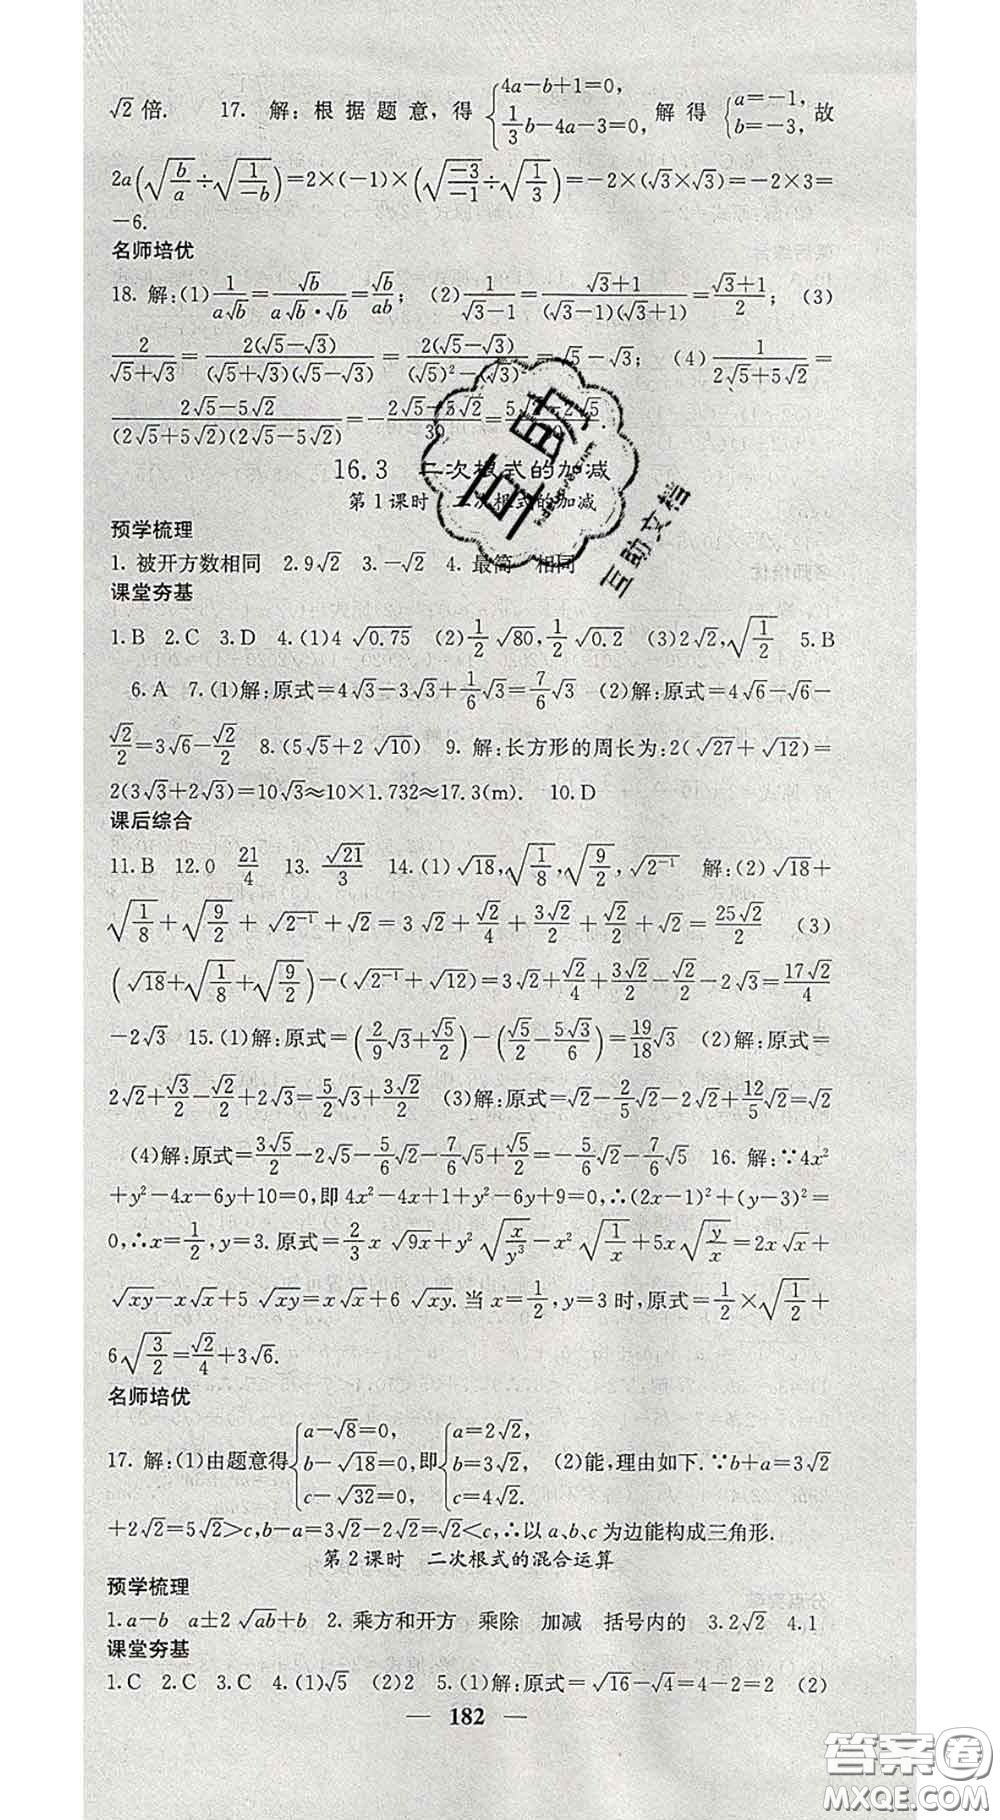 √2倍. 17. 解:根据题意,得{4a−b+1=0, 1/3b−4a−3=0,解得{a=−1, b=−3,故
2a(√(b/a)÷√(1/−b))=2×(−1)×(√(−3/−1)÷√(1/3))=−2×(√3×√3)=−2×3=
−6.
名师培优
18. 解:(1)1/(a√b)=√b/(a√b·√b)=√b/(ab); (2)1/(√3−1)=(√3+1)/((√3−1)(√3+1))=(√3+1)/2; (3)
2/(√5+√3)=2(√5−√3)/((√5+√3)(√5−√3))=2(√5−√3)/((√5)²−(√3)²)=√5−√3; (4)1/(2√5+5√2)=
(2√5−5√2)/((2√5+5√2)(2√5−5√2))=−(2√5−5√2)/30=
16.3 二次根式的加减
第1课时 二次根式的加减
预学梳理
1. 被开方数相同 2.9√2 3.−√2 4. 最简 相同
课堂夯基
1.B 2.C 3.D 4.(1)4 √0.75 (2)1/2√80,1/2√0.2 (3)2√2,√(1/2) 5.B
6.A 7.(1)解:原式=4√3−3√3+1/6√3=7/6√3 (2)解:原式=4√6−√6−
√2/2=3√6−√2/2 8.(5√5+2√10) 9. 解:长方形的周长为:2(√27+√12)=
2(3√3+2√3)=10√3≈10×1.732≈17.3(m). 10.D
课后综合
11.B 12.0 21/4 13. √21/3 14.(1)√18,√(1/8),√(9/2),√(2⁻¹) 解:(2)√18+
√(1/8)+√(9/2)+√(2⁻¹)+√2=3√2+√2/4+3√2/2+√2/2+√2=25√2/2 (3)
(√18+√(1/8)+√(9/2))−(√(2⁻¹)+√12)=3√2+√2/4+3√2/2−√2/2−2√3=17√2/4
−2√3 15.(1)解:原式=(2/9√3+√5/2)−(√5/2−5√3/6)=19/18√3 (2)解:原式=
2√2+√3/2−√2/2+2√3=5/2√3+3√2/2 (3)解:原式=√2−2/5√2−2√2+12/5√2=√2
(4)解:原式=3√5/2−2√5−5/6√2−7/6√5+√5/2=−5/6√2−7/6√5 16. 解:∵4x²
+y²−4x−6y+10=0,即4x²−4x+1+y²−6y+9=0,∴(2x−1)²+(y−3)²=
0,∴x=1/2,y=3.原式=2/3x√9x+y²√(x/y³)−x²√(1/x)+5x√(y/x)=2x√x+
√xy−x√x+5√xy=x√x+6√xy.当x=1/2,y=3时,原式=1/2×√(1/2)+
6√(3/2)=√2/4+3√6.
名师培优
17. 解:(1)由题意得{a−√8=0, b−√18=0, c−√32=0,即{a=2√2, b=3√2, c=4√2. (2)能,理由如下.∵b+a=3√2
+2√2=5√2>c,b−a=3√2−2√2=√2<c,∴以a、b、c为边能构成三角形.
第2课时 二次根式的混合运算
预学梳理
1.a−b a±2√ab+b 2. 乘方和开方 乘除 加减 括号内的 3.2√2 4.1
课堂夯基
1.C 2.C 3.C 4.(1)√5 (2)2 5.(1)解:原式=√16−√4=4−2=2 (2)
— 182 —
互助
互助文档
答案圈
MXQE.COM